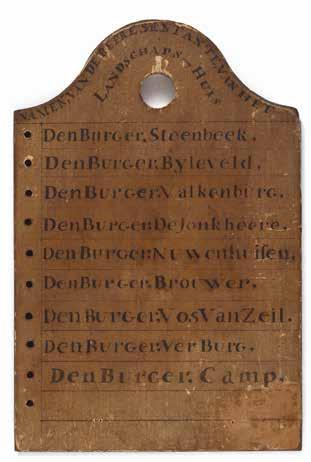 NAMEN, VAN DE REPRESENTANTEN VAN HET
LANDSCHAPS HUIS
Den Burger, Steenbeek.
Den Burger, Byleveld,
Den Burger, Valkenburg.
Den Burger, De Jonkheere.
Den Burger, Nuwenhuisen,
Den Burger, Brouwer,
Den Burger, Vos Van Zeil.
Den Burger, Ver Burg.
Den Burger, Camp,